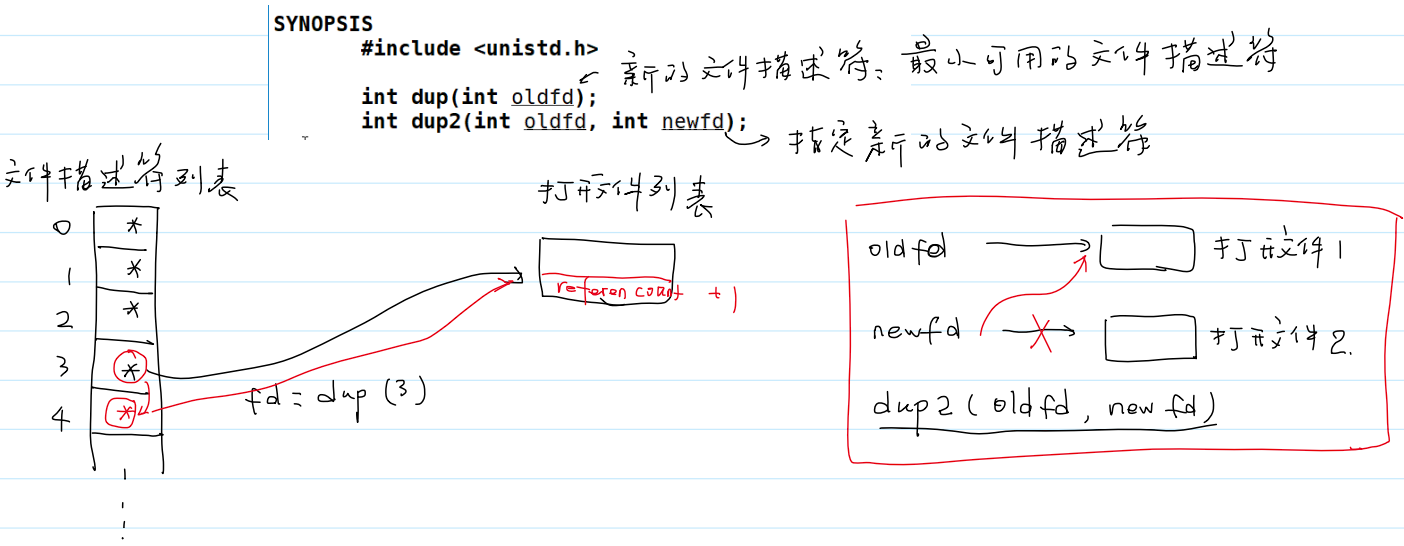 SYNOPSIS
#include <unistd.h>
新的文件描述符、最小可用的文件描述符
int dup(int oldfd);
int dup2(int oldfd, int newfd);
指定新的文件描述符
文件描述符列表
打开文件列表
0 *
1 *
2 *
3 *
4 *
referen count +1
fd = dup (3)
oldfd 打开文件1
newfd 打开文件2.
dup2(oldfd, newfd)